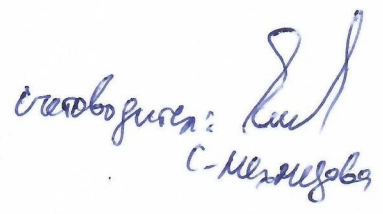 счетоводител:
С-Мехмедова